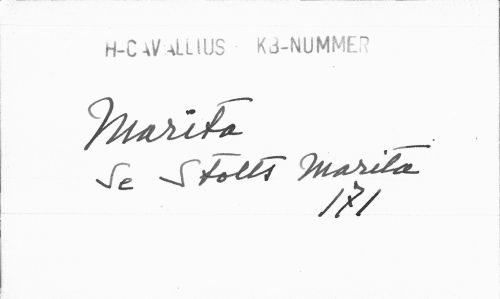 H-CAVALLIUS KB-NUMMER
Marita
Se Stolts Marita
171